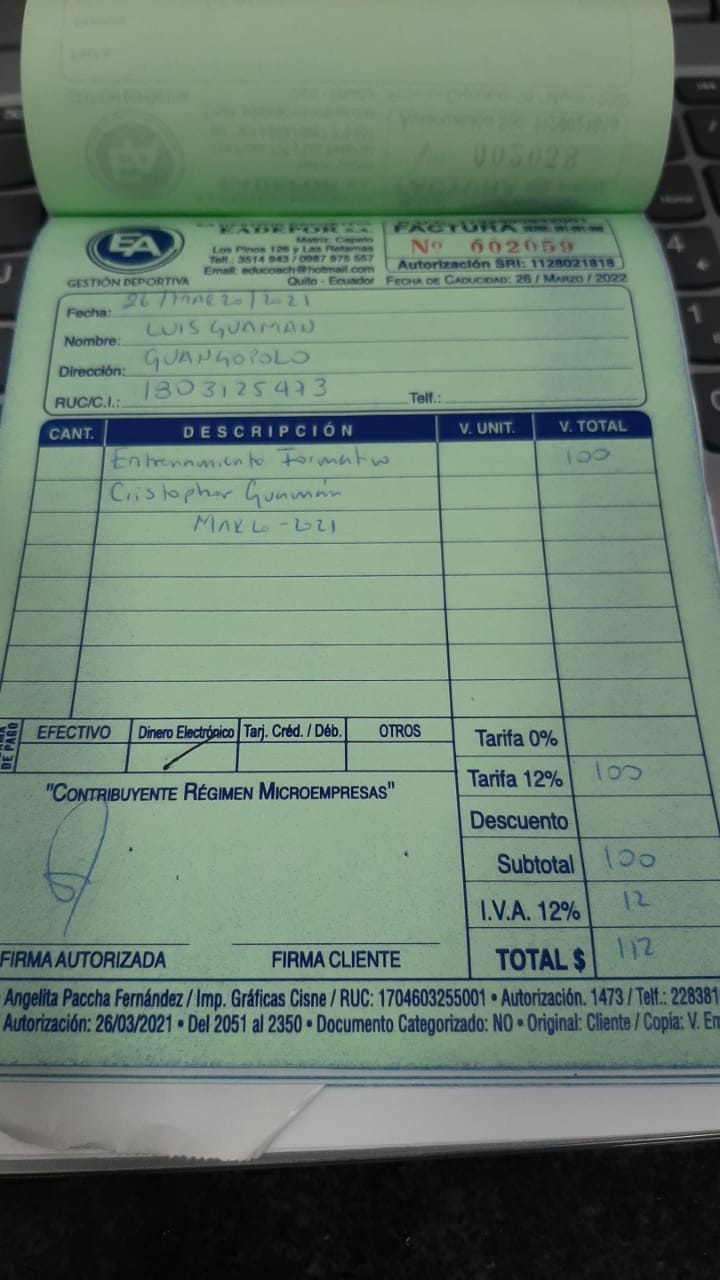 002058
EA
GESTIÓN DEPORTIVA
EADEPOR S.A.
Matriz: Capelo
Los Pinos 126 y Las Retamas
Telf.: 3514 943 / 0987 975 557
Email: educoach@hotmail.com
Quito - Ecuador
FACTURA
Nº 002059
Autorización SRI: 1128021818
FECHA DE CADUCIDAD: 26 / MARZO / 2022
Fecha: 26/MARZO/2021
Nombre: LUIS GUAMAN
Dirección: GUANGOPOLO
RUC/C.I.: 1803125473 Telf.:
CANT. DESCRIPCIÓN V. UNIT. V. TOTAL
Entrenamiento Formativo 100
Cristopher Guamán
MARZO-2021
DE PAGO
EFECTIVO Dinero Electrónico Tarj. Créd. / Déb. OTROS
Tarifa 0%
Tarifa 12% 100
"CONTRIBUYENTE RÉGIMEN MICROEMPRESAS"
Descuento
Subtotal 100
I.V.A. 12% 12
TOTAL $ 112
FIRMA AUTORIZADA FIRMA CLIENTE
Angelita Paccha Fernández / Imp. Gráficas Cisne / RUC: 1704603255001 • Autorización. 1473 / Telf.: 228381
Autorización: 26/03/2021 • Del 2051 al 2350 • Documento Categorizado: NO • Original: Cliente / Copia: V. Em